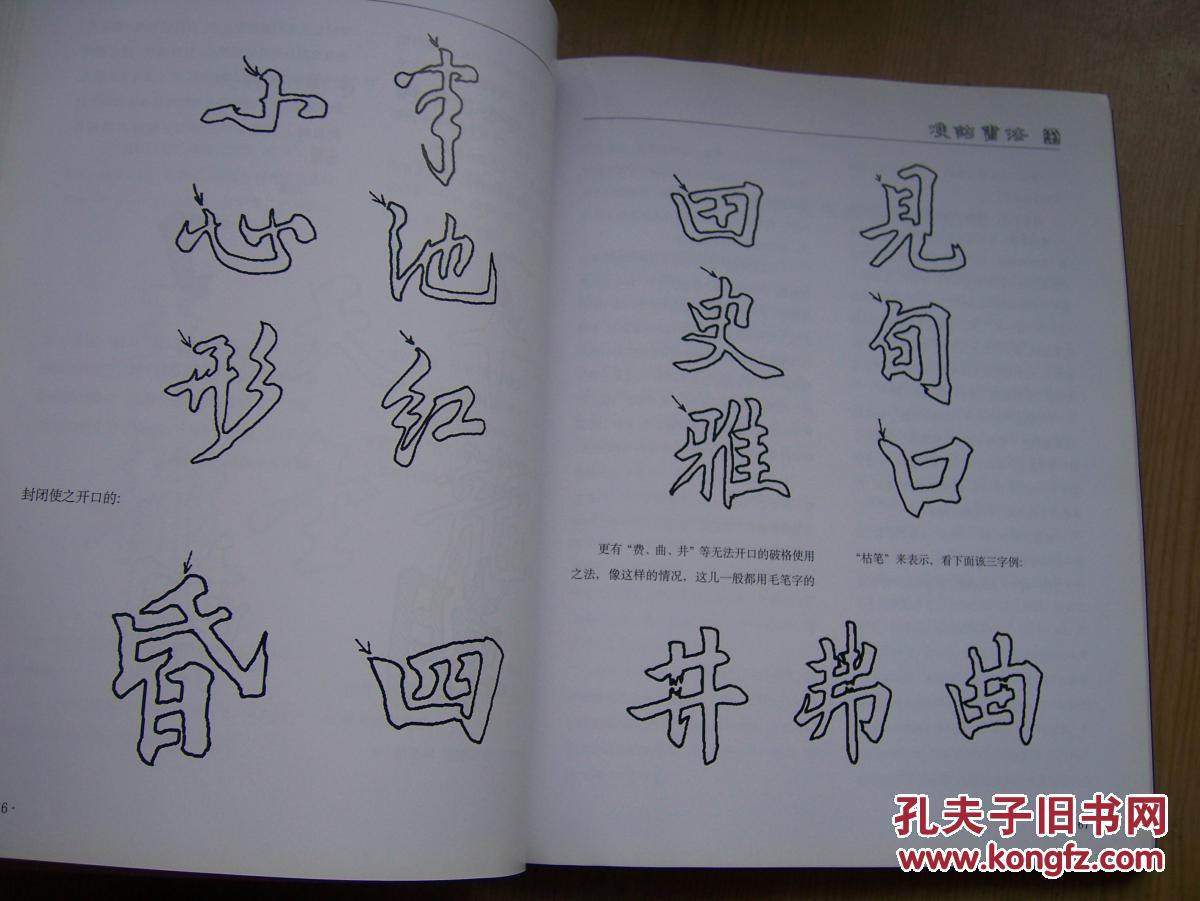 小
心 池
形 红
封闭使之开口的：
昏 四
6·
書法
田 見
史 旬
雅 口
更有“费、曲、井”等无法开口的破格使用
之法，像这样的情况，这儿一般都用毛笔字的
“枯笔”来表示，看下面该三字例：
井 弗 曲
67
孔夫子旧书网
www.kongfz.com